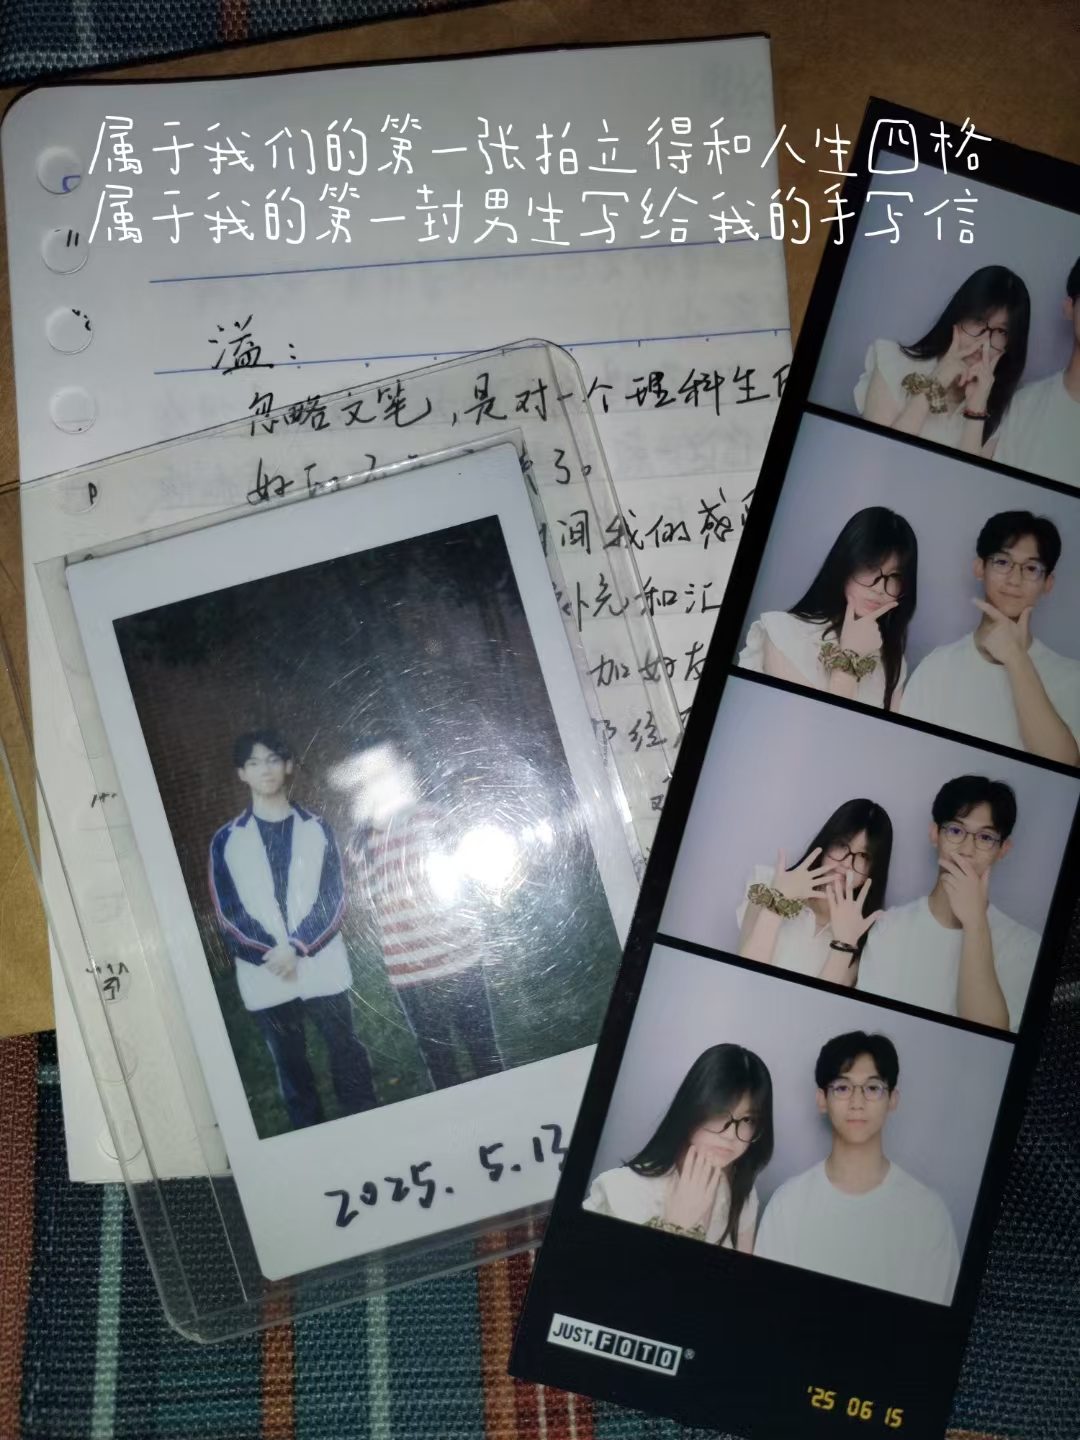 属于我们的第一张拍立得和人生四格
属于我的第一封男生写给我的手写信
溢：
忽略文笔，是对一个理科生
好的
了。
间我们的感
补充和汇
加好友
2025. 5.13
JUST.FOTO®
'25 06 15